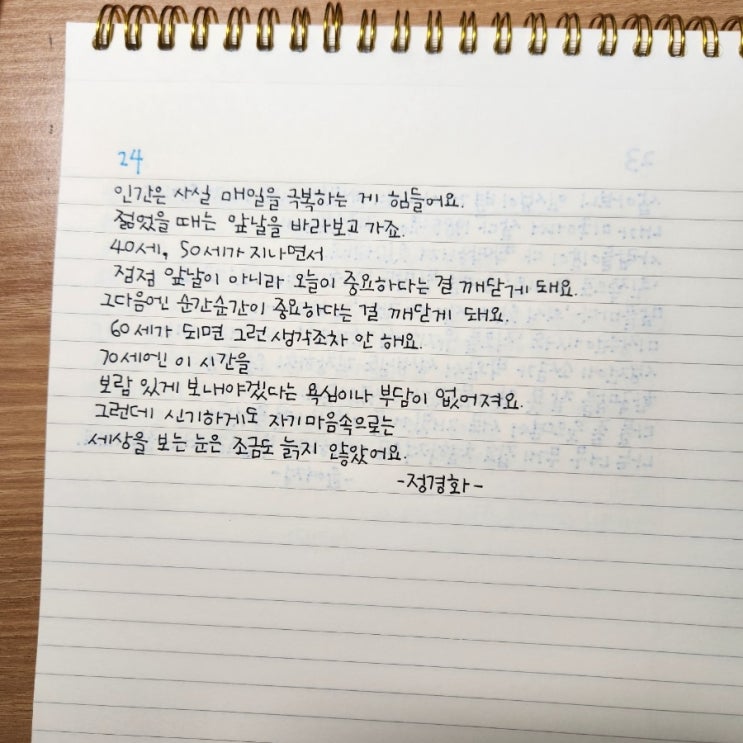 24
인간은 사실 매일을 극복하는 게 힘들어요.
젊었을 때는 앞날을 바라보고 가죠.
40세, 50세가 지나면서
점점 앞날이 아니라 오늘이 중요하다는 걸 깨닫게 돼요.
그다음엔 순간순간이 중요하다는 걸 깨닫게 돼요.
60세가 되면 그런 생각조차 안 해요.
70세엔 이 시간을
보람 있게 보내야겠다는 욕심이나 부담이 없어져요.
그런데 신기하게도 자기 마음속으로는
세상을 보는 눈은 조금도 늙지 않았어요.
-정경화-